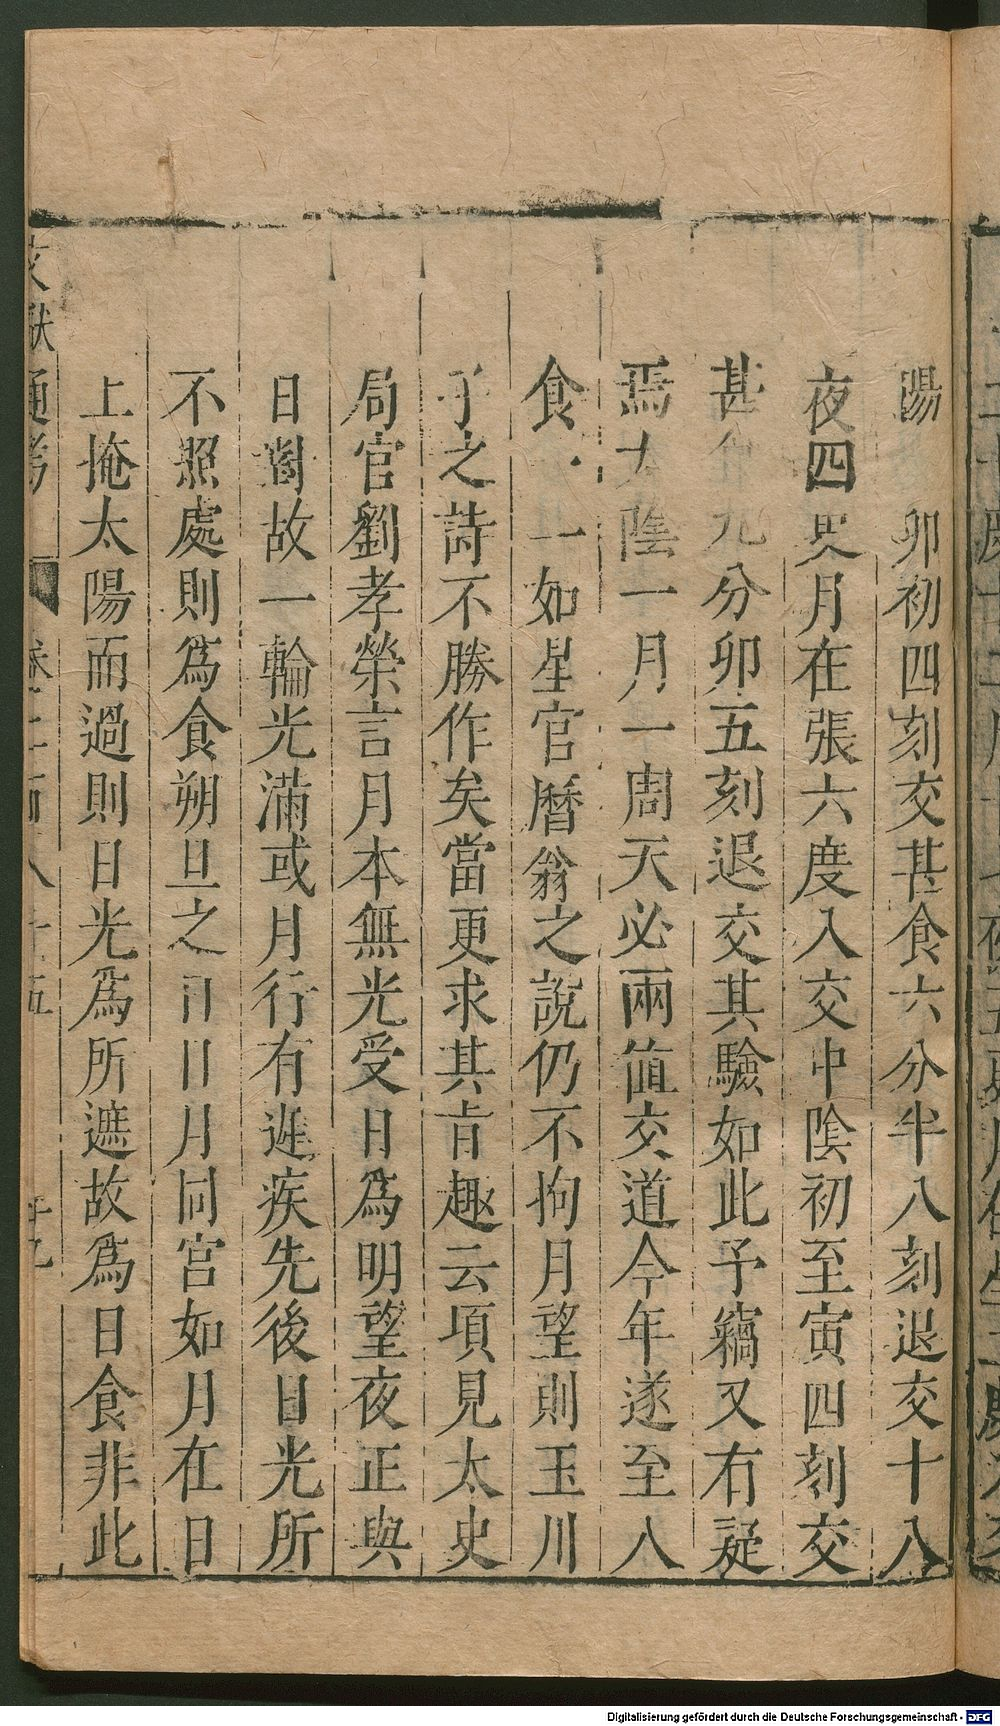 陽　卯初四刻交甚食六分半八刻退交十八
夜四更月在張六度入交中陰初至寅四刻交
甚食九分卯五刻退交其驗如此予竊又有疑
焉太陰一月一周天必兩值交道今年遂至八
食一如星官曆翁之說仍不拘月望則玉川
子之詩不勝作矣當更求其肯趣云頃見太史
局官劉孝榮言月本無光受日為明望夜正與
日對故一輪光滿或月行有遲疾先後日光所
不照處則為食朔旦之日日月同宮如月在日
上掩太陽而過則日光為所遮故為日食非此
文獻通考
Digitalisierung gefördert durch die Deutsche Forschungsgemeinschaft - DFG